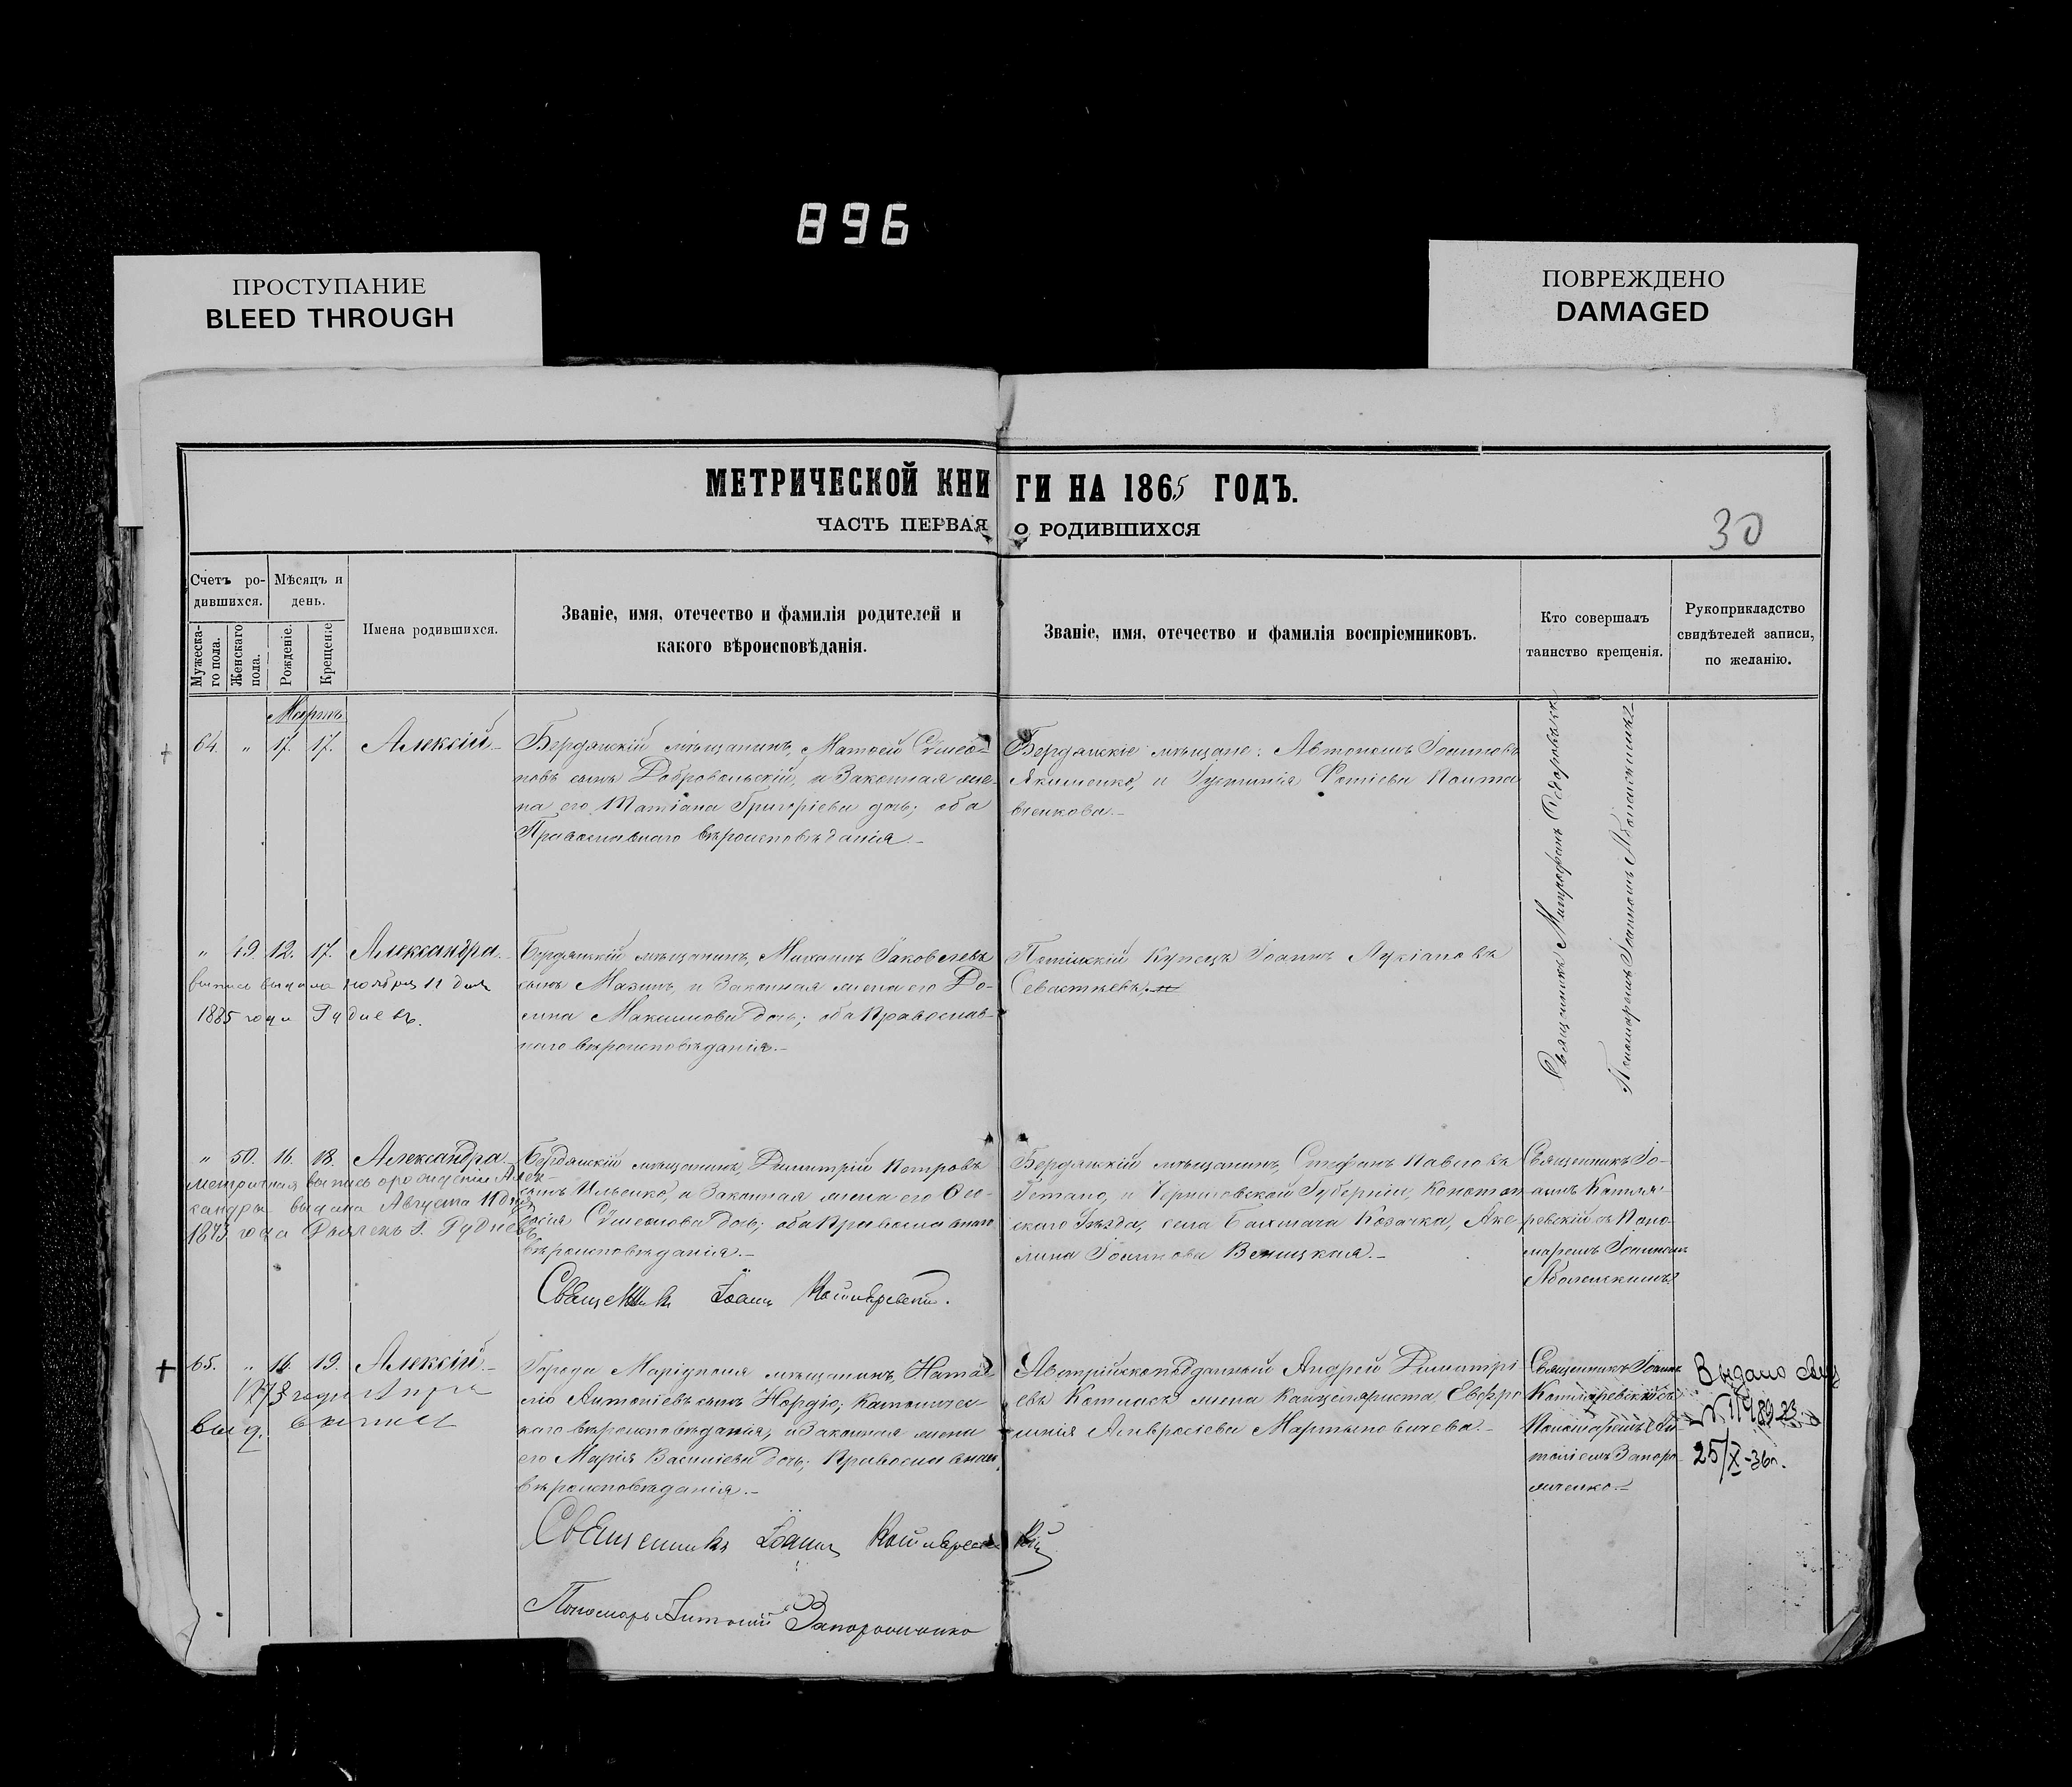 896
ПРОСТУПАНИЕ
BLEED THROUGH
ПОВРЕЖДЕНО
DAMAGED
МЕТРИЧЕСКОЙ КНИГИ НА 1865 ГОДЪ.
ЧАСТЬ ПЕРВАЯ О РОДИВШИХСЯ
30
Счетъ ро-
дившихся.
Мужеска-
го пола.
Женскаго
пола.
Мѣсяцъ и
день.
Рожденіе.
Крещеніе
Имена родившихся.
Званіе, имя, отечество и фамилія родителей и
какого вѣроисповѣданія.
Званіе, имя, отечество и фамилія воспріемниковъ.
Кто совершалъ
таинство крещенія.
Рукоприкладство
свидѣтелей записи,
по желанію.
Мартъ
64. " 17. 17. Алексій.
Бердянскій мѣщанинъ, Матѳей Сѵмео-
новъ сынъ Добровольскій, и Законная же-
на его Татіана Григоріева дочь; оба
Православнаго вѣроисповѣданія.
Бердянскіе мѣщане: Автономъ Іоанновъ
Якименко, и Іустинія Фотіева
Священникъ Митрофанъ
Пономаремъ Іоанномъ
" 49. 12. 17. Александра.
выпись выдана ноября 11 дня
1885 года
Бердянскій мѣщанинъ, Михаилъ Іаковлевъ
сынъ Мазинъ, и Законная жена его До-
мна Максимова дочь; оба Православ-
наго вѣроисповѣданія.
Купецъ Іоаннъ Лукіановъ
Севастѣевъ,
" 50. 16. 18. Александра.
Метричная выпись о рожденіи Алек-
сандры выдана Августа 11 дня
1873 года
Бердянскій мѣщанинъ, Димитрій Петровъ
сынъ Ильенко, и Законная жена его Ѳео-
досія Сѵмеонова дочь; оба Православнаго
вѣроисповѣданія.
Священникъ Іоаннъ Котляревскій.
Бердянскій мѣщанинъ, Стефанъ Павловъ
Гетано, и Черниговской Губерніи, Конотоп-
скаго Уѣзда, села Бахмача Козачка, Аке-
лина Іоаннова
Священникъ Іо-
аннъ Котля-
ревскій съ Поно-
маремъ Іоанномъ
65. " 14. 19. Алексій.
выд. выпись
Города Маріуполя мѣщанинъ,
Антоніевъ сынъ католичес-
каго вѣроисповѣданія, и Законная жена
его Марія Василіева дочь; Православнаго
вѣроисповѣданія.
Священникъ Іоаннъ Котляревскій
Пономарь Антоній Запорожченко
Австрійскоподданный Андрей Димитрі-
евъ жена Канцеляриста, Евфро-
синія Амвросіева Мартыновичева.
Священникъ Іоаннъ
Котляревскій съ
Пономаремъ Ан-
тоніемъ Запоро-
жченко.
Выдано свид
25/X-36г.